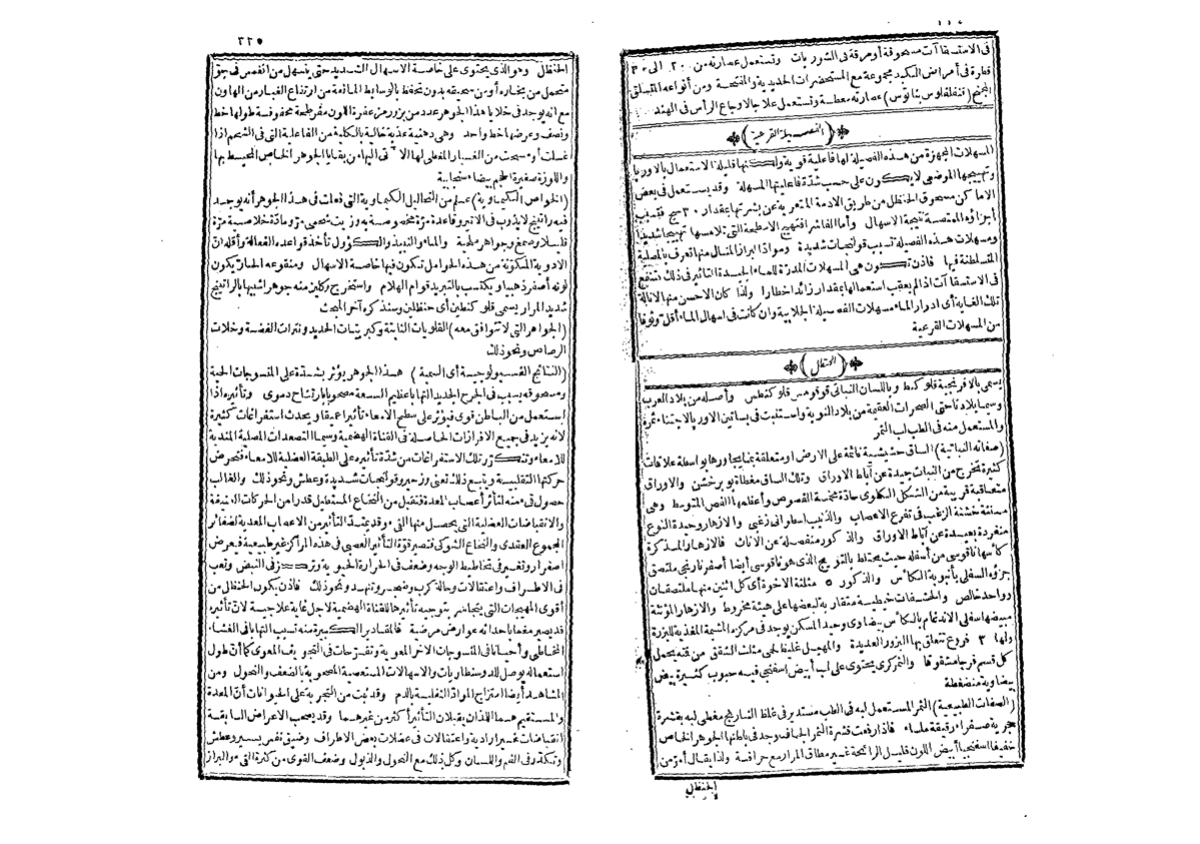 فى الاستسقاآت مسحوقة أو مرقة فى الشوربات وتستعمل عصارته من ٢٠ الى ٣٠
قطرة فى أمراض الكبد مجموعة مع المستحضرات الحديدية والمفتحة ومن أنواعه المتسلق
المجنح عصارته معطسة وتستعمل علاجا لاوجاع الرأس فى الهند
(الفصيلة القرعية)
المسهلات المجهزة من هذه الفصيلة لها فاعلية قوية ولكنها قليلة الاستعمال بالاوربا
وتهييجها الموضعى لا يكون على حسب شدة فاعليتها المسهلة وقد يستعمل فى بعض
الاماكن مسحوق الحنظل من طريق الادمة المتعرية عن بشرتها بمقدار ٣٠ سج فتسبب
أجزاؤه الممتصة نتيجة الاسهال وأما الفاشرا فتهيج الاسطحة التى تلامسها تهييجا شديدا
ومسهلات هذه الفصيلة تسبب قولنجات شديدة ومواد البراز المنال منها تعرف بالمصلية
المتسلطنة فيها فاذن تكون هى المسهلات المدرة للماء الجيدة التأثير فى ذلك تنفع
فى الاستسقاآت اذا لم يعقب استعمالها بمقدار زائد اخطارا ولذا كان الاحسن منها لانالة
تلك الغاية أى ادرار الماء مسهلات الفصيلة الجلابية وان كانت فى اسهال الماء أقل وثوقا
من المسهلات القرعية
(الحنظل)
يسمى بالافرنجية قلوكنط وباللسان النباتى قوقومس قلوكنطس وأصله من بلاد العرب
وسيما بلادنا حتى الصحرات العقيمة من بلاد النوبة واستنبت فى بساتين الاوربا لاجتناء ثمرة
والمستعمل منه فى الطب لب الثمر
(صفاته النباتية) الساق حشيشية نائمة على الارض او متعلقة بما يجاورها بواسطة علاقات
كثيرة تخرج من النبات جيدة عن آباط الاوراق وتلك الساق مغطاة بوبر خشن والاوراق
متعاقبة قريبة من الشكل الكلوى حادة مخمسة الفصوص وأعظمها الفص المتوسط وهى
مسننة خشنة الزغب فى تفرع الاعصاب والذنيب اسطوانى زغبى والازهار وحيدة النوع
منفردة بعيدة عن آباط الاوراق والذكور منفصلة عن الاناث فالازهار المذكرة
كأسها ناقوسى من أسفله حيث يختلط بالتويج الذى هو ناقوسى أيضا أصفر نارنجى ملتصق
جزؤه السفلى بأنبوبة الكأس والذكور ٥ مثلثة الاخوة أى كل اثنين منها ملتصقان
وواحد خالص والحشفات خيطية متقاربة لبعضها على هيئة مخروط والازهار المؤنثة
مبيضها سفلى الاندغام بالكأس بيضاوى وحيد المسكن يوجد فى مركزه المشيمة المغذية للبزرة
ولها ٣ فروع تتعلق بها البزور العديدة والمهبل غليظ لحمى مثلث الشقق من قمته يحمل
كل قسم فرجا مشقوقا والثمر كرى يحتوى على لب أبيض اسفنجى فيه حبوب كثيرة بيض
بيضاوية منضغطة
(الصفات الطبيعية) الثمر المستعمل لبه فى الطب مستدير فى غلظ النارنج مغطى لبه بقشرة
حجرية صفراء رقيقة ملساء فاذا رفعت قشرة الثمر الجاف وجد فى باطنها الجوهر الخاص
خفيفا اسفنجيا أبيض اللون قليل الرائحة غير مطاق المرار مع حرافة ولذا يقال أمر من
الحنظل
٣٢٥
الحنظل وهو الذى يحتوى على خاصة الاسهال الشديد حتى يسهل من انغمس فى جو
متحمل من بخاره أو من سحيقه بدون تحفظ بالوسايط المانعة من ارتفاع الغبار من الهاون
مع انه يوجد فى خلايا هذا الجوهر عدد من بزور مر عفرة اللون مفرطحة محفوفة طولها خط
ونصف وعرضها خط واحد وهى دهنية عذبة خالية بالكلية من الفاعلية التى فى الشحم اذا
غسلت أو مسحت من الغبار المغطى لها الآتى اليها من بقايا الجوهر الخاص المحيط بها
واللوزة صغيرة الحجم بيضاء سنجابية
(الخواص الكيماوية) علم من التحاليل الكيماوية التى فعلت فى هذا الجوهر أنه يوجد
فيه راتينج لا يذوب فى الاتير وقاعدة مرة مخصوصة به وزيت شحمى مر ومادة خلاصية مرة
قليلا وصمغ وجواهر ملحية والماء والنبيذ والكؤول تأخذ قواعده الفعالة وأقله ان
الادوية المتكونة من هذه الحوامل تكون فيها خاصة الاسهال ومنقوعه الحار يكون
لونه أصفر ذهبيا ويكتسب بالتبريد قوام الهلام واستخرج وكلين منه جوهرا شبيها بالراتينج
شديد المرار يسمى قلوكنطين أى حنظلين وسنذكره آخر المبحث
(الجواهر التى لا تتوافق معه) القلويات الثابتة وكبريتات الحديد ونترات الفضة وخلات
الرصاص ونحو ذلك
(النتائج الفسيولوجية أى السمية) هذا الجوهر يؤثر بشدة على المنسوجات الحية
ومسحوقه يسبب فى الجرح الجديد التهابا عظيم السعة مصحوبا بارتشاح دموى وتأثيره اذا
استعمل من الباطن قوى فيؤثر على سطح الامعاء تأثيرا عميقا ويحدث استفراغات كثيرة
لانه يزيد فى جميع الافرازات الحاصلة فى القناة الهضمية وسيما التصعدات المصلية المندية
للامعاء وتتكرر تلك الاستفراغات من شدة تأثيره على الطبقة العضلية للامعاء فتحرض
حركتها التقلصية ويتبع ذلك تعنى وزحير وقولنجات شديدة وعطش ونحو ذلك والغالب
حصول قىء منه لتأثر أعصاب المعدة فتقبل من النخاع المستطيل قدرا من الحركات العنيفة
والانقباضات العضلية التى يحصل منها القىء وقد يمتد التأثير من الاعصاب المعدية لضفائر
المجموع العقدى والنخاع الشوكى فتصير قوة التأثير العصبى فى هذه المراكز غير طبيعية فيعرض
اصفرار وتغير فى تخاطيط الوجه وضعف فى الحرارة الحيوية وتركز فى النبض وتعب
فى الاطراف واعتقالات وحالة كرب وضجر وتنهد ونحو ذلك فاذن يكون الحنظل من
أقوى المهيجات التى يتجاسر بتوجيه تأثيرها للقناة الهضمية لاجل غاية علاجية لان تأثيره
قد يصير مفعا باحداثه عوارض مرضية فالمقادير الكبيرة منه تسبب التهابا فى الغشاء
المخاطى وأحيانا فى المنسوجات الاخر المعوية وتقرحات فى التجويف المعوى كما أن طول
استعماله يوصل للدوسنطاريات والاسهالات المستعصية المصحوبة بالضعف والنحول ومن
المشاهد أيضا امتزاج المواد الثفلية بالدم وقد ثبت من التجربة على الحيوانات أن المعدة
والمستقيم هما اللذان يقبلان التأثير أكثر من غيرهما وقد يصحب الاعراض السابقة
انقباضات غير ارادية واعتقالات فى عضلات بعض الاطراف وضيق نفس يسير وعطش
وتكدر فى الفم واللسان وكل ذلك مع النحول والذبول وضعف القوى من كثرة القىء والبراز